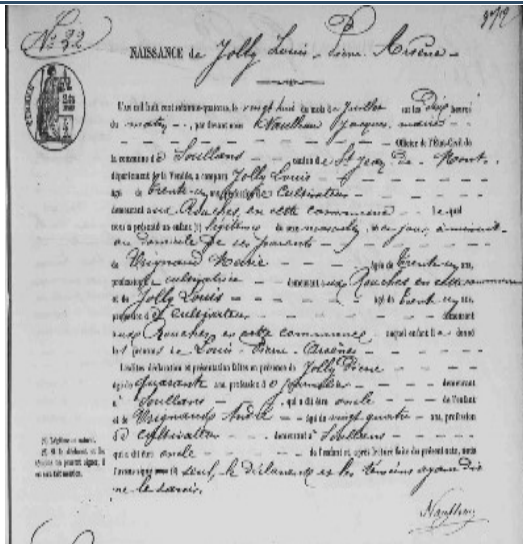 N° 22
NAISSANCE de Jolly Louis - Pierre - Arsène -
L'an mil huit cent soixante-quatorze, le vingt huit du mois de Juillet sur les heures
du matin - -, par devant nous Naulleau Jacques, maire -
Officier de l'État-Civil de
la commune d Soullans - - canton de St Jean - de - Mont -
département de la Vendée, a comparu Jolly Louis - -
âgé de trente-un ans, Cultivateur - -
demeurant aux Rouches, en cette commune - - Lequel
nous a présenté un enfant (1) légitime du sexe masculin, né ce jour, à minuit -
au domicile de ses parents - -
de Vrignaud Marie - - âgée de trente-un ans,
profession d cultivatrice - - demeurant aux Rouches en cette commune
et de Jolly Louis - - âgé de trente un ans,
profession d cultivateur - - demeurant
aux Rouches, en cette commune - auquel enfant il a donné
les prénoms de Louis - Pierre - Arsène -
Lesdites déclaration et présentation faites en présence de Jolly Pierre
âgé de quarante ans, profession d journalier - - demeurant
à Soullans - - qui a dit être oncle - - de l'enfant
et de Vrignaud André - - âgé de vingt quatre - ans, profession
d cultivateur - - demeurant à Soullans -
qui a dit être oncle - - de l'enfant et après lecture faite des présentes, nous
l'avons signé seul, le déclarant et les témoins ayant dit
ne le savoir.
(1) Légitime ou naturel.
Naulleau